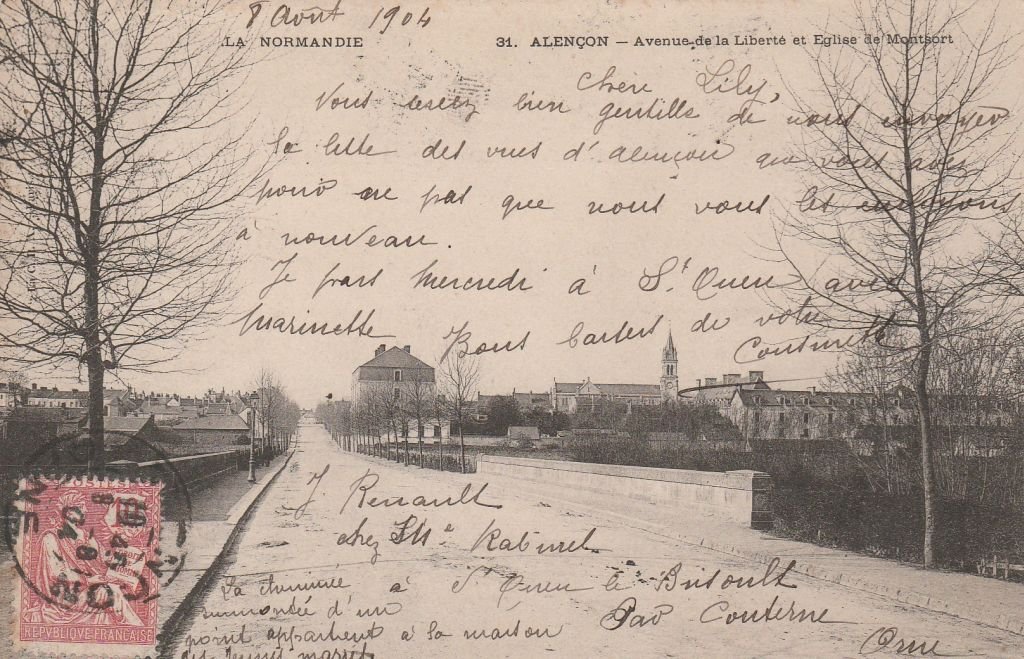 8 Août 1904
LA NORMANDIE
31. ALENÇON — Avenue de la Liberté et Eglise de Montsort
Chère Lily,
Vous seriez bien gentille de nous envoyer
la liste des vues d'Alençon que vous avez
pour ne pas que nous vous les envoyions
à nouveau.
Je pars Mercredi à St Ouen avec
Marinette Bons baisers de votre
J. Renault
chez Mme
à St Ouen le Brisoult
Par Couterne
Orne
La cheminée
surmontée d'un
point appartient à la maison
REPVBLIQVE FRANÇAISE